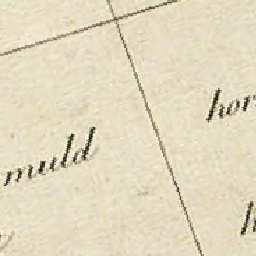 muld
hor